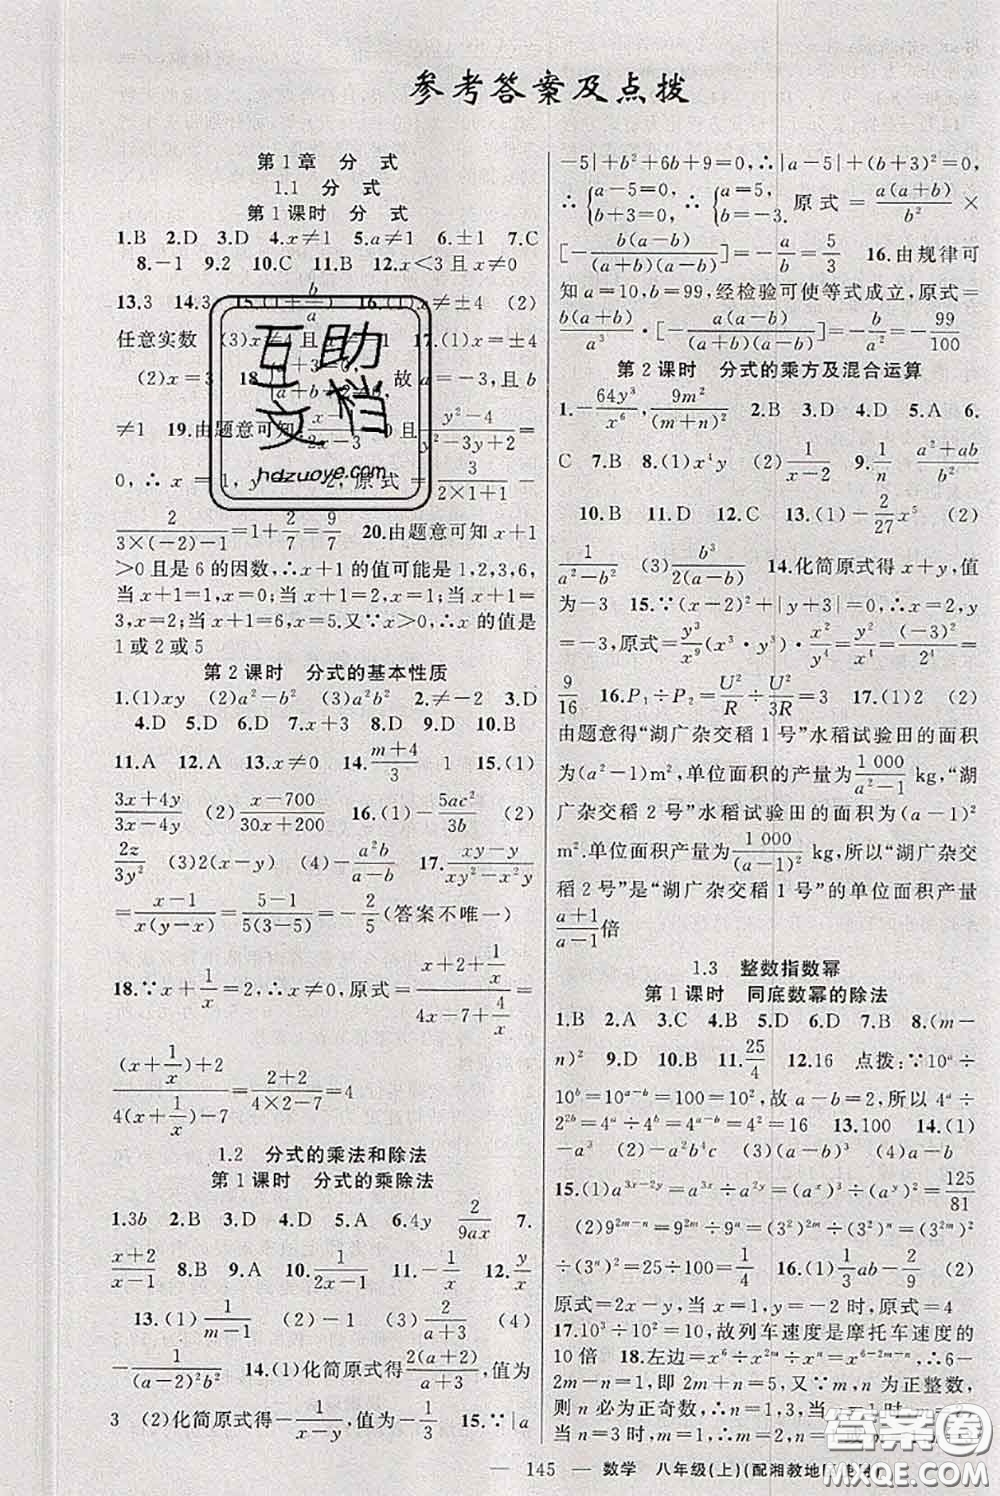 参考答案及点拨
第1章 分 式
1.1 分 式
第1课时 分 式
1.B 2.D 3.D 4.x≠1 5.a≠1 6.±1 7.C
8.-1 9.2 10.C 11.B 12.x<3且x≠0
13.3 14.3 15.(1+b/a) 16.(1)x≠±4 (2)
任意实数 (3)x≠ 17.(1)x=±4
(2)x=3 18. 故a=-3,且b
≠1 19.由题意可知 (y²-4)/(y²-3y+2)=
0,∴x=1,y=-2,原式=3/(2×1+1)-
2/(3×(-2)-1)=1+2/7=9/7 20.由题意可知x+1
>0且是6的因数,∴x+1的值可能是1,2,3,6,
当x+1=1,x=0;当x+1=2,x=1;当x+1=
3,x=2;当x+1=6,x=5.又∵x>0,∴x的值是
1或2或5
第2课时 分式的基本性质
1.(1)xy (2)a²-b² (3)a²b² 2.D 3.D
4.D 5.D 6.D 7.D 8.D 9.D 10.B
11.A 12.A 13.x≠0 14.(m+4)/3 1 15.(1)
(3x+4y)/(3x-4y) (2)(x-700)/(30x+200) 16.(1)-5ac²/3b (2)
2z/3y² (3)2(x-y) (4)-a²b/a 17.(xy-y)/(xy²-x²y)
=(x-1)/(x(y-x))=(5-1)/(5(3-5))=-2/5(答案不唯一)
18.∵x+1/x=2,∴x≠0,原式=(x+2+1/x)/(4x-7+4/x)=
((x+1/x)+2)/(4(x+1/x)-7)=(2+2)/(4×2-7)=4
1.2 分式的乘法和除法
第1课时 分式的乘除法
1.3b 2.B 3.D 4.D 5.A 6.4y 2/9ax 7.
(x+2)/(x-1) 8.B 9.A 10.1/(2x-1) 11.-1/x 12.y/x
13.(1)1/(m-1) (2)-1 (3)2/(a+3) (4)
-1/((a-2)²b²) 14.(1)化简原式得2(a+2)/(a+3),值为
3 (2)化简原式得-1/(x-y),值为-1/3 15.∵|a
-5|+b²+6b+9=0,∴|a-5|+(b+3)²=0,
∴{a-5=0, b+3=0. ∴{a=5, b=-3. 原式=a(a+b)/b²×
[-b(a-b)/((a+b)(a-b))]=-a/b=5/3 16.由规律可
知a=10,b=99,经检验可使等式成立,原式=
b(a+b)/a³·[-a(a-b)/((a+b)(a-b))]=-99/100
第2课时 分式的乘方及混合运算
1.-64y³/x⁶,9m²/(m+n)² 2.B 3.D 4.D 5.A 6.
C 7.B 8.(1)x⁴y (2)1/(x-2) 9.1/n (a²+ab)/b²
10.B 11.D 12.C 13.(1)-2/27x⁵ (2)
1/(a²-b²) (3)b³/(2(a-b)) 14.化简原式得x+y,值
为-3 15.∵(x-2)²+|y+3|=0,∴x=2,y=
-3,原式=y³/x⁹(x³·y³)=y⁶/x⁶=(-3)⁶/2⁶=
9/16 16.P₁÷P₂=U²/R÷U²/3R=3 17.(1)2 (2)
由题意得“湖广杂交稻1号”水稻试验田的面积
为(a²-1)m²,单位面积的产量为1 000/(a²-1) kg,“湖
广杂交稻2号”水稻试验田的面积为(a-1)²
m².单位面积产量为1 000/(a-1)² kg,所以“湖广杂交
稻2号”是“湖广杂交稻1号”的单位面积产量
(a+1)/(a-1)倍
1.3 整数指数幂
第1课时 同底数幂的除法
1.B 2.A 3.C 4.B 5.D 6.D 7.B 8.(m-
n)² 9.D 10.B 11.25/4 12.16 点拨:∵10ᵃ÷
10ᵇ=10ᵃ⁻ᵇ=100=10²,故a-b=2,所以4ᵃ÷
2²ᵇ=4ᵃ÷4ᵇ=4ᵃ⁻ᵇ=4²=16 13.100 14.(1)-
a⁴b⁴ (2)-c² (3)(a-b)³ (4)a-b
15.(1)a³ˣ⁻²ʸ=a³ˣ÷a²ʸ=(aˣ)³÷(aʸ)²=125/81
(2)9²ᵐ⁻ⁿ=9²ᵐ÷9ⁿ=(3²)²ᵐ÷(3²)ⁿ=(3²ᵐ)²
÷(3ⁿ)²=25÷100=1/4 16.(1)1/3ab-2/9 (2)
原式=2x-y,当x=1,y=-2时,原式=4
17.10³÷10²=10,故列车速度是摩托车速度的
10倍 18.左边=x⁶÷x²ᵐ÷xⁿ=x⁶⁻²ᵐ⁻ⁿ,∴6-
2m-n=1,2m+n=5,又∵m、n为正整数,
则n必为正奇数,∴n=1,3,当n=1时,m=2,
当n=3时,m=1
互助文档
hdzuoye.com
答案圈
— 145 — 数学 八年级(上)(配湘教地